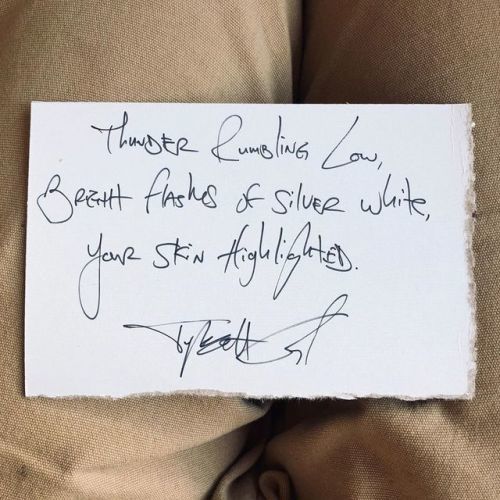 Thunder Rumbling Low,
Bright flashes of silver white,
your skin Highlighted.